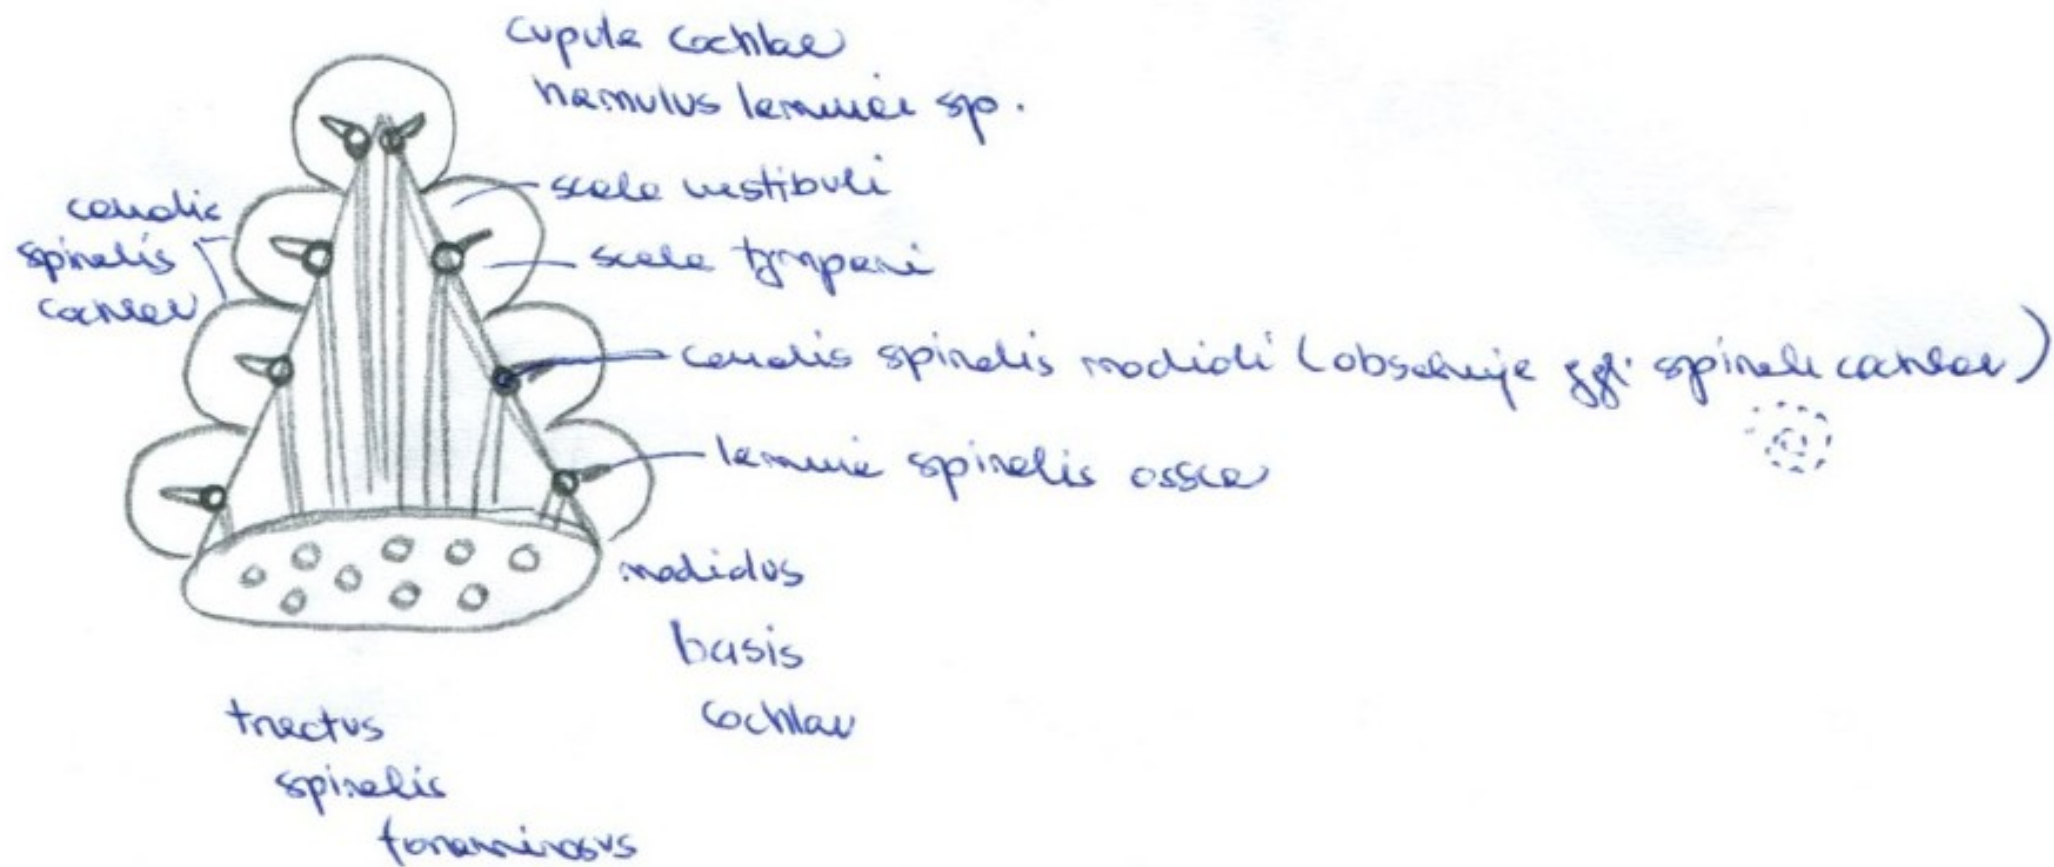 cupula cochlae
hamulus laminae sp.
scala vestibuli
canalis
spiralis
cochleae
scala tympani
canalis spiralis modioli (obsahuje ggl. spirale cochleae)
lamina spiralis ossea
modiolus
basis
cochlae
tractus
spiralis
foraminosus